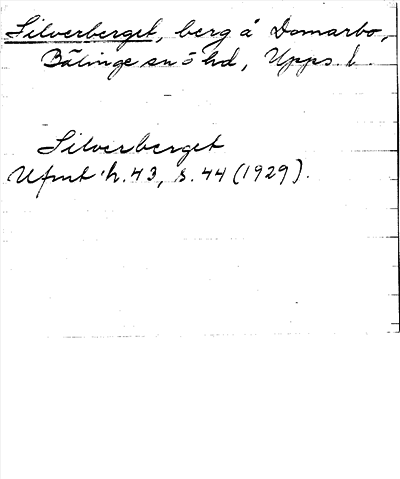 Silverberget, berg å Domarbo,
Bälinge sn o hd, Upps. l.
Silverberget
Ufmt h. 43, s. 44 (1929).